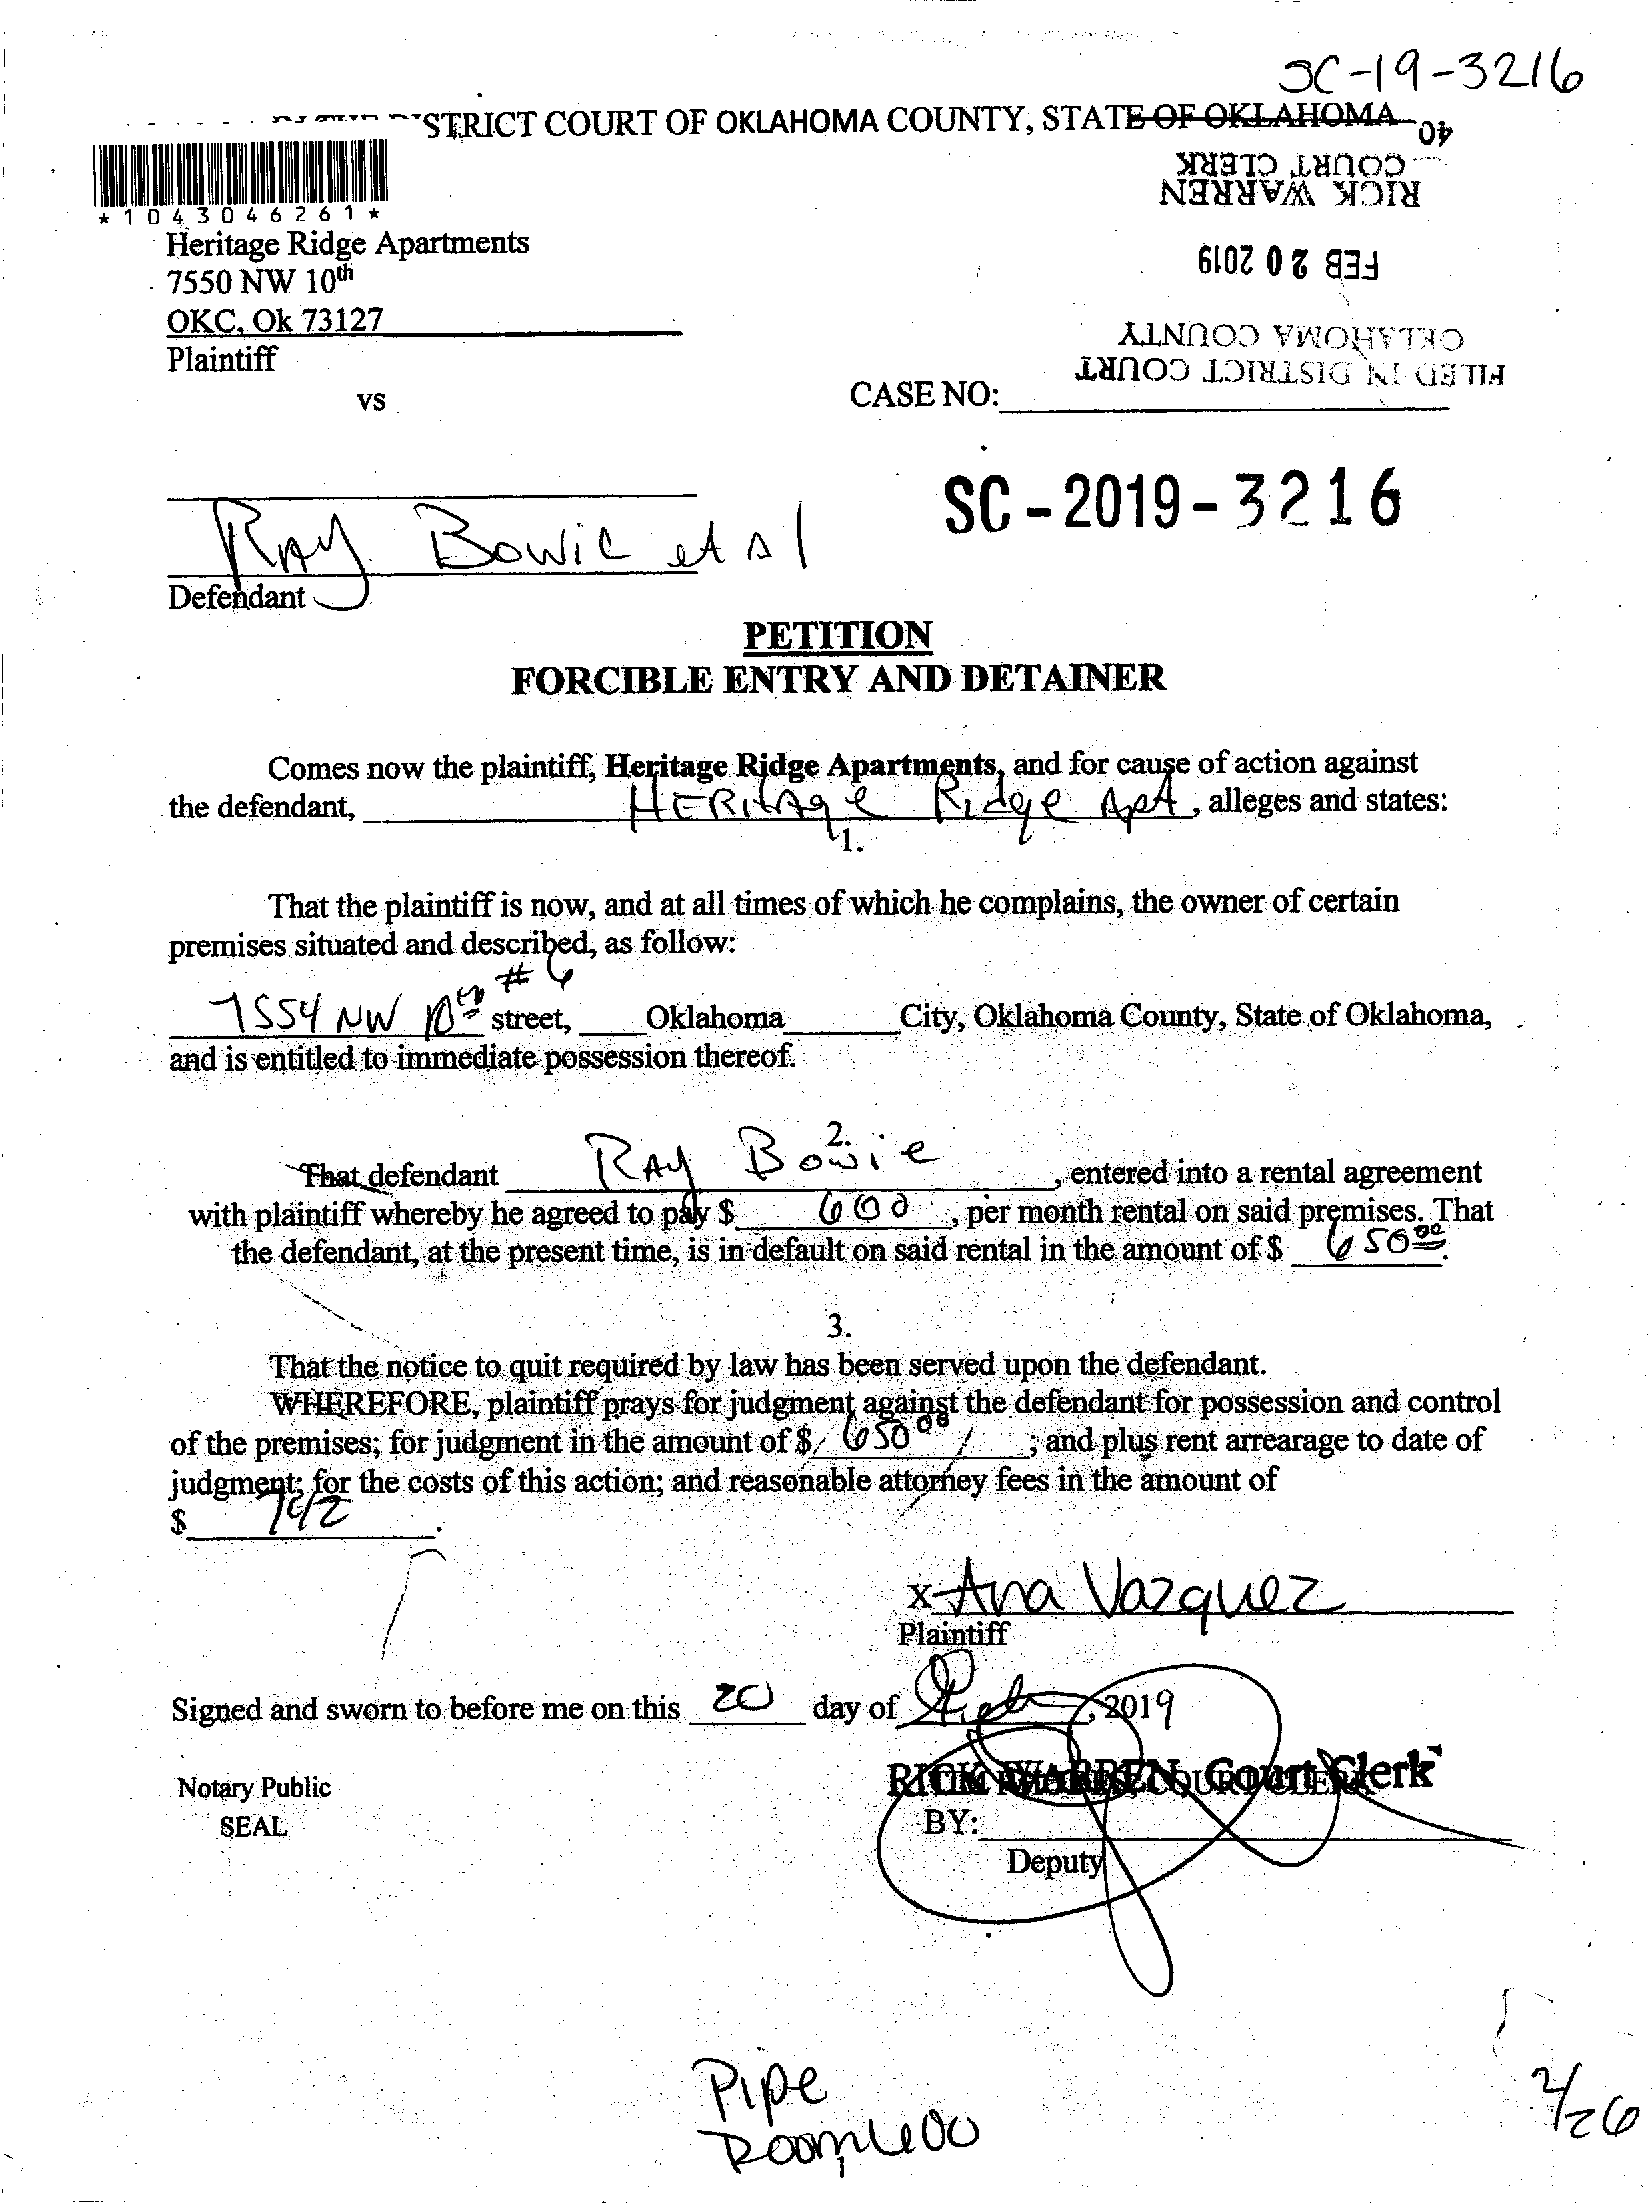 SC-19-3216
STRICT COURT OF OKLAHOMA COUNTY, STATE OF OKLAHOMA
40
COURT CLERK
RICK WARREN
*1043046261*
Heritage Ridge Apartments
FEB 20 2019
7550 NW 10th
OKC, Ok 73127
OKLAHOMA COUNTY
Plaintiff
FILED IN DISTRICT COURT
vs
CASE NO:
SC-2019-3216
Ray Bowie et al
Defendant
PETITION
FORCIBLE ENTRY AND DETAINER
Comes now the plaintiff, Heritage Ridge Apartments, and for cause of action against
the defendant, HERitAge Ridge Apt, alleges and states:
1.
That the plaintiff is now, and at all times of which he complains, the owner of certain
premises situated and described, as follow:
7554 NW 10th #6 street, Oklahoma City, Oklahoma County, State of Oklahoma,
and is entitled to immediate possession thereof.
2.
That defendant RAy Bowie, entered into a rental agreement
with plaintiff whereby he agreed to pay $ 600, per month rental on said premises. That
the defendant, at the present time, is in default on said rental in the amount of $ 650 00.
3.
That the notice to quit required by law has been served upon the defendant.
WHEREFORE, plaintiff prays for judgment against the defendant for possession and control
of the premises; for judgment in the amount of $ 650 00; and plus rent arrearage to date of
judgment; for the costs of this action; and reasonable attorney fees in the amount of
$ 192.
x Ana Vazquez
Plaintiff
Signed and sworn to before me on this 20 day of Feb, 2019
RICK WARREN, Court Clerk
Notary Public
SEAL
BY:
Deputy
Pipe
Room 600
2/26